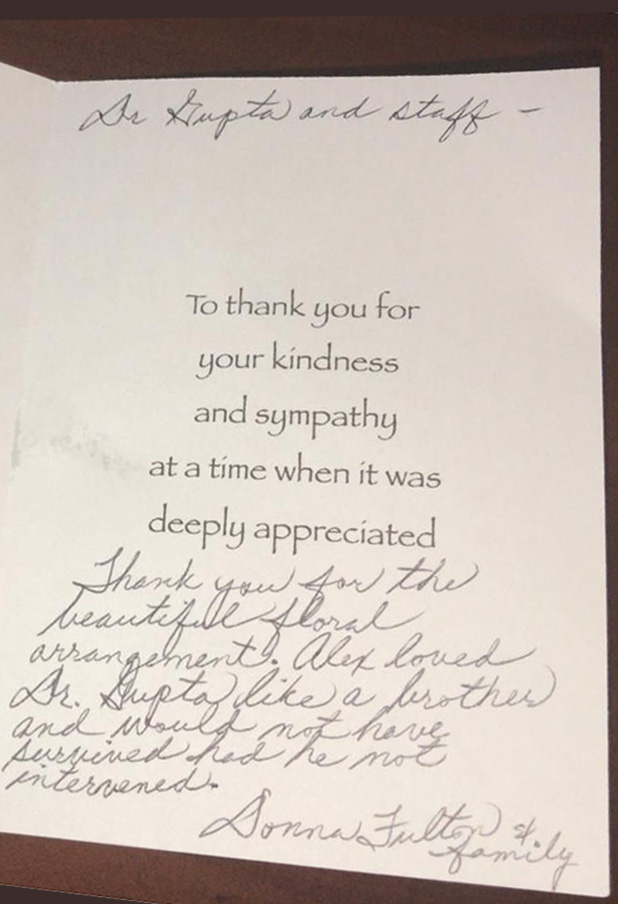 Dr Gupta and staff –
To thank you for
your kindness
and sympathy
at a time when it was
deeply appreciated
Thank you for the
beautiful floral
arrangement. Alex loved
Dr. Gupta like a brother
and would not have
survived had he not
intervened.
Donna Fulton &
family